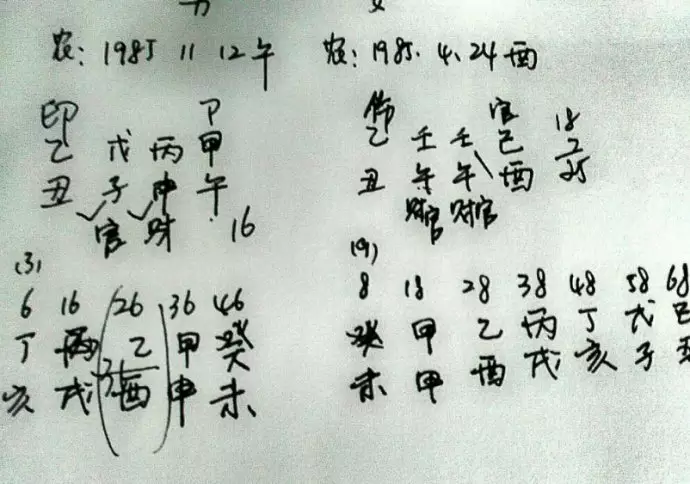 男 女
农: 1985 11 12 午 农: 1985. 4. 24 酉
印 卩 伤 官
乙 戊 丙 甲 乙 壬 壬 己 18
丑 子 申 午 丑 午 午 酉 25
官 财 16 财官 财官
(3) (9)
6 16 26 36 46 8 18 28 38 48 58 68
丁 丙 乙 甲 癸 癸 甲 乙 丙 丁 戊 己
亥 戌 酉 申 未 未 甲 酉 戌 亥 子